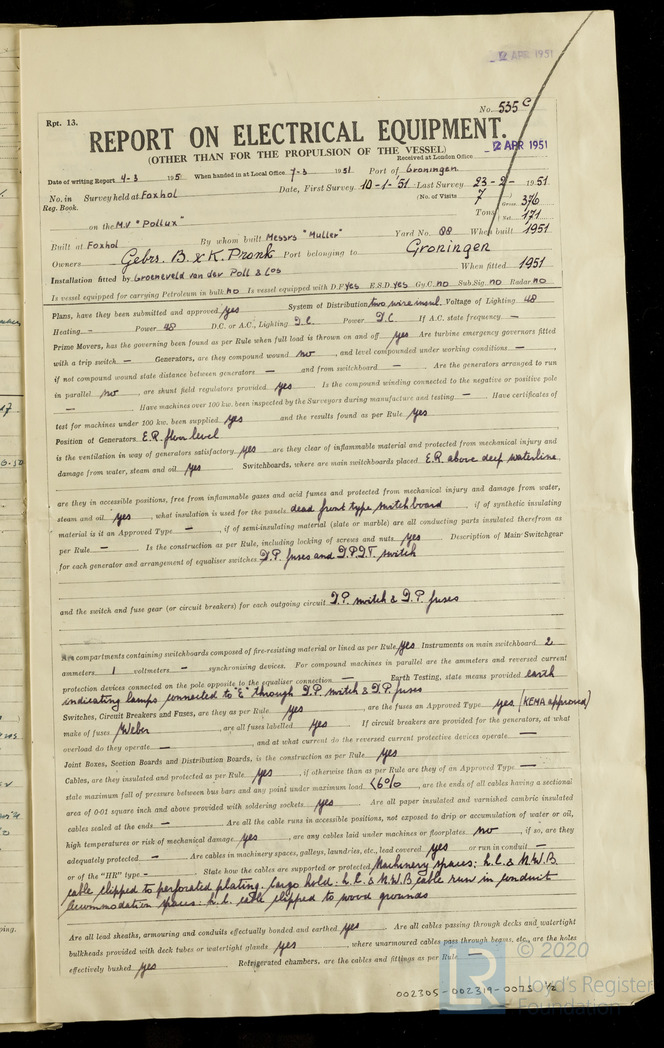 12 APR 1951
No. 535 c
Rpt. 13.
REPORT ON ELECTRICAL EQUIPMENT.
(OTHER THAN FOR THE PROPULSION OF THE VESSEL)
Received at London Office 12 APR 1951
Date of writing Report 4-3 195 When handed in at Local Office 7-3 1951 Port of Groningen
No. in Survey held at Foxhol Date, First Survey 10-1-'51 Last Survey 23-2- 1951
Reg. Book. (No. of Visits 7
on the M.V "Pollux" Tons Gross 376 Net 171
Built at Foxhol By whom built Messrs "Muller" Yard No. 88 When built 1951
Owners Gebrs. B. & K. Pronk Port belonging to Groningen
Installation fitted by Groeneveld van der Poll & Cos When fitted 1951
Is vessel equipped for carrying Petroleum in bulk No Is vessel equipped with D.F. yes E.S.D. yes Gy.C. no Sub.Sig. no Radar no
Plans, have they been submitted and approved yes System of Distribution two wire insul. Voltage of Lighting 48
Heating - Power 48 D.C. or A.C., Lighting D.C. Power D.C. If A.C. state frequency —
Prime Movers, has the governing been found as per Rule when full load is thrown on and off yes Are turbine emergency governors fitted
with a trip switch — Generators, are they compound wound no, and level compounded under working conditions —
if not compound wound state distance between generators — and from switchboard — Are the generators arranged to run
in parallel no, are shunt field regulators provided yes Is the compound winding connected to the negative or positive pole
— Have machines over 100 kw. been inspected by the Surveyors during manufacture and testing — Have certificates of
test for machines under 100 kw. been supplied yes and the results found as per Rule yes
Position of Generators E.R. floor level
is the ventilation in way of generators satisfactory yes are they clear of inflammable material and protected from mechanical injury and
damage from water, steam and oil yes Switchboards, where are main switchboards placed E.R. above deep waterline
are they in accessible positions, free from inflammable gases and acid fumes and protected from mechanical injury and damage from water,
steam and oil yes, what insulation is used for the panels dead front type switchboard, if of synthetic insulating
material is it an Approved Type —, if of semi-insulating material (slate or marble) are all conducting parts insulated therefrom as
per Rule — Is the construction as per Rule, including locking of screws and nuts yes Description of Main Switchgear
for each generator and arrangement of equaliser switches D.P. fuses and D.P.D.T. switch
and the switch and fuse gear (or circuit breakers) for each outgoing circuit D.P. switch & D.P. fuses
Are compartments containing switchboards composed of fire-resisting material or lined as per Rule yes Instruments on main switchboard 2
ammeters 1 voltmeters — synchronising devices. For compound machines in parallel are the ammeters and reversed current
protection devices connected on the pole opposite to the equaliser connection — Earth Testing, state means provided earth
indicating lamps connected to "E" through D.P. switch & D.P. fuses
Switches, Circuit Breakers and Fuses, are they as per Rule yes, are the fuses an Approved Type yes (KEMA approved)
make of fuses Weber, are all fuses labelled yes If circuit breakers are provided for the generators, at what
overload do they operate —, and at what current do the reversed current protective devices operate —
Joint Boxes, Section Boards and Distribution Boards, is the construction as per Rule yes
Cables, are they insulated and protected as per Rule yes, if otherwise than as per Rule are they of an Approved Type —
state maximum fall of pressure between bus bars and any point under maximum load <6%, are the ends of all cables having a sectional
area of 0·01 square inch and above provided with soldering sockets yes Are all paper insulated and varnished cambric insulated
cables sealed at the ends — Are all the cable runs in accessible positions, not exposed to drip or accumulation of water or oil,
high temperatures or risk of mechanical damage yes, are any cables laid under machines or floorplates no, if so, are they
adequately protected — Are cables in machinery spaces, galleys, laundries, etc., lead covered yes or run in conduit —
or of the "HR" type - State how the cables are supported or protected Machinery spaces: L.C. & M.W.B
cable clipped to perforated plating. Cargo hold: L.C. & M.W.B cable run in conduit
Accommodation spaces: L.C. cable clipped to wood grounds
Are all lead sheaths, armouring and conduits effectually bonded and earthed yes Are all cables passing through decks and watertight
bulkheads provided with deck tubes or watertight glands yes, where unarmoured cables pass through beams, etc., are the holes
effectively bushed yes Refrigerated chambers, are the cables and fittings as per Rule —
002305-002319-0075 1/2
LR
© 2020
Lloyd's Register
Foundation